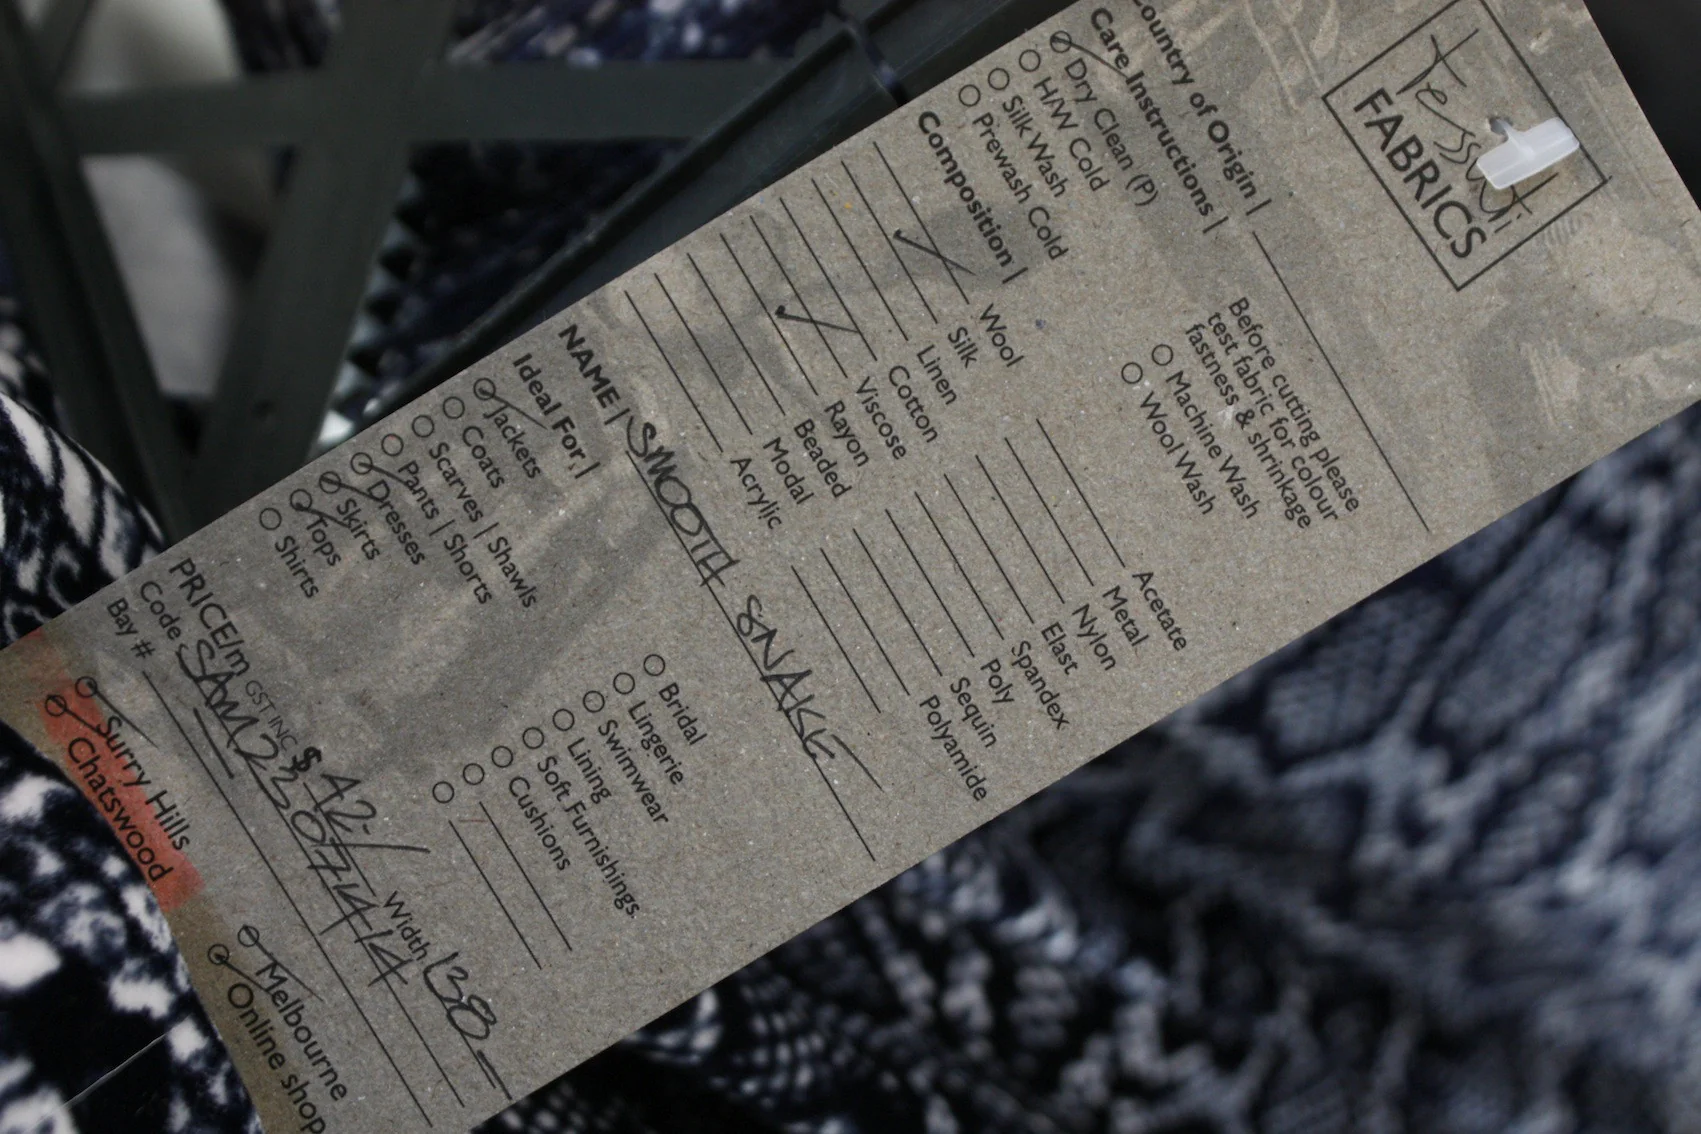 Tessuti
FABRICS
Country of Origin |
Care Instructions |
Dry Clean (P)
H/W Cold
Silk Wash
Prewash Cold
Before cutting please
test fabric for colour
fastness & shrinkage
Machine Wash
Wool Wash
Composition |
Wool
Silk
Linen
Cotton
Viscose
Rayon
Beaded
Modal
Acrylic
Acetate
Metal
Nylon
Elast
Spandex
Poly
Sequin
Polyamide
NAME | SMOOTH SNAKE
Ideal For: |
Jackets
Coats
Scarves | Shawls
Pants | Shorts
Dresses
Skirts
Tops
Shirts
Bridal
Lingerie
Swimwear
Lining
Soft Furnishings
Cushions
PRICE/m GST INC $ 42-/ Width 138
Code SAM23071414
Bay #
Surry Hills
Chatswood
Melbourne
Online shop